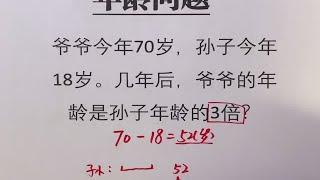 年龄问题
爷爷今年70岁，孙子今年
18岁。几年后，爷爷的年
龄是孙子年龄的3倍？
70-18=52(岁)
孙： 52